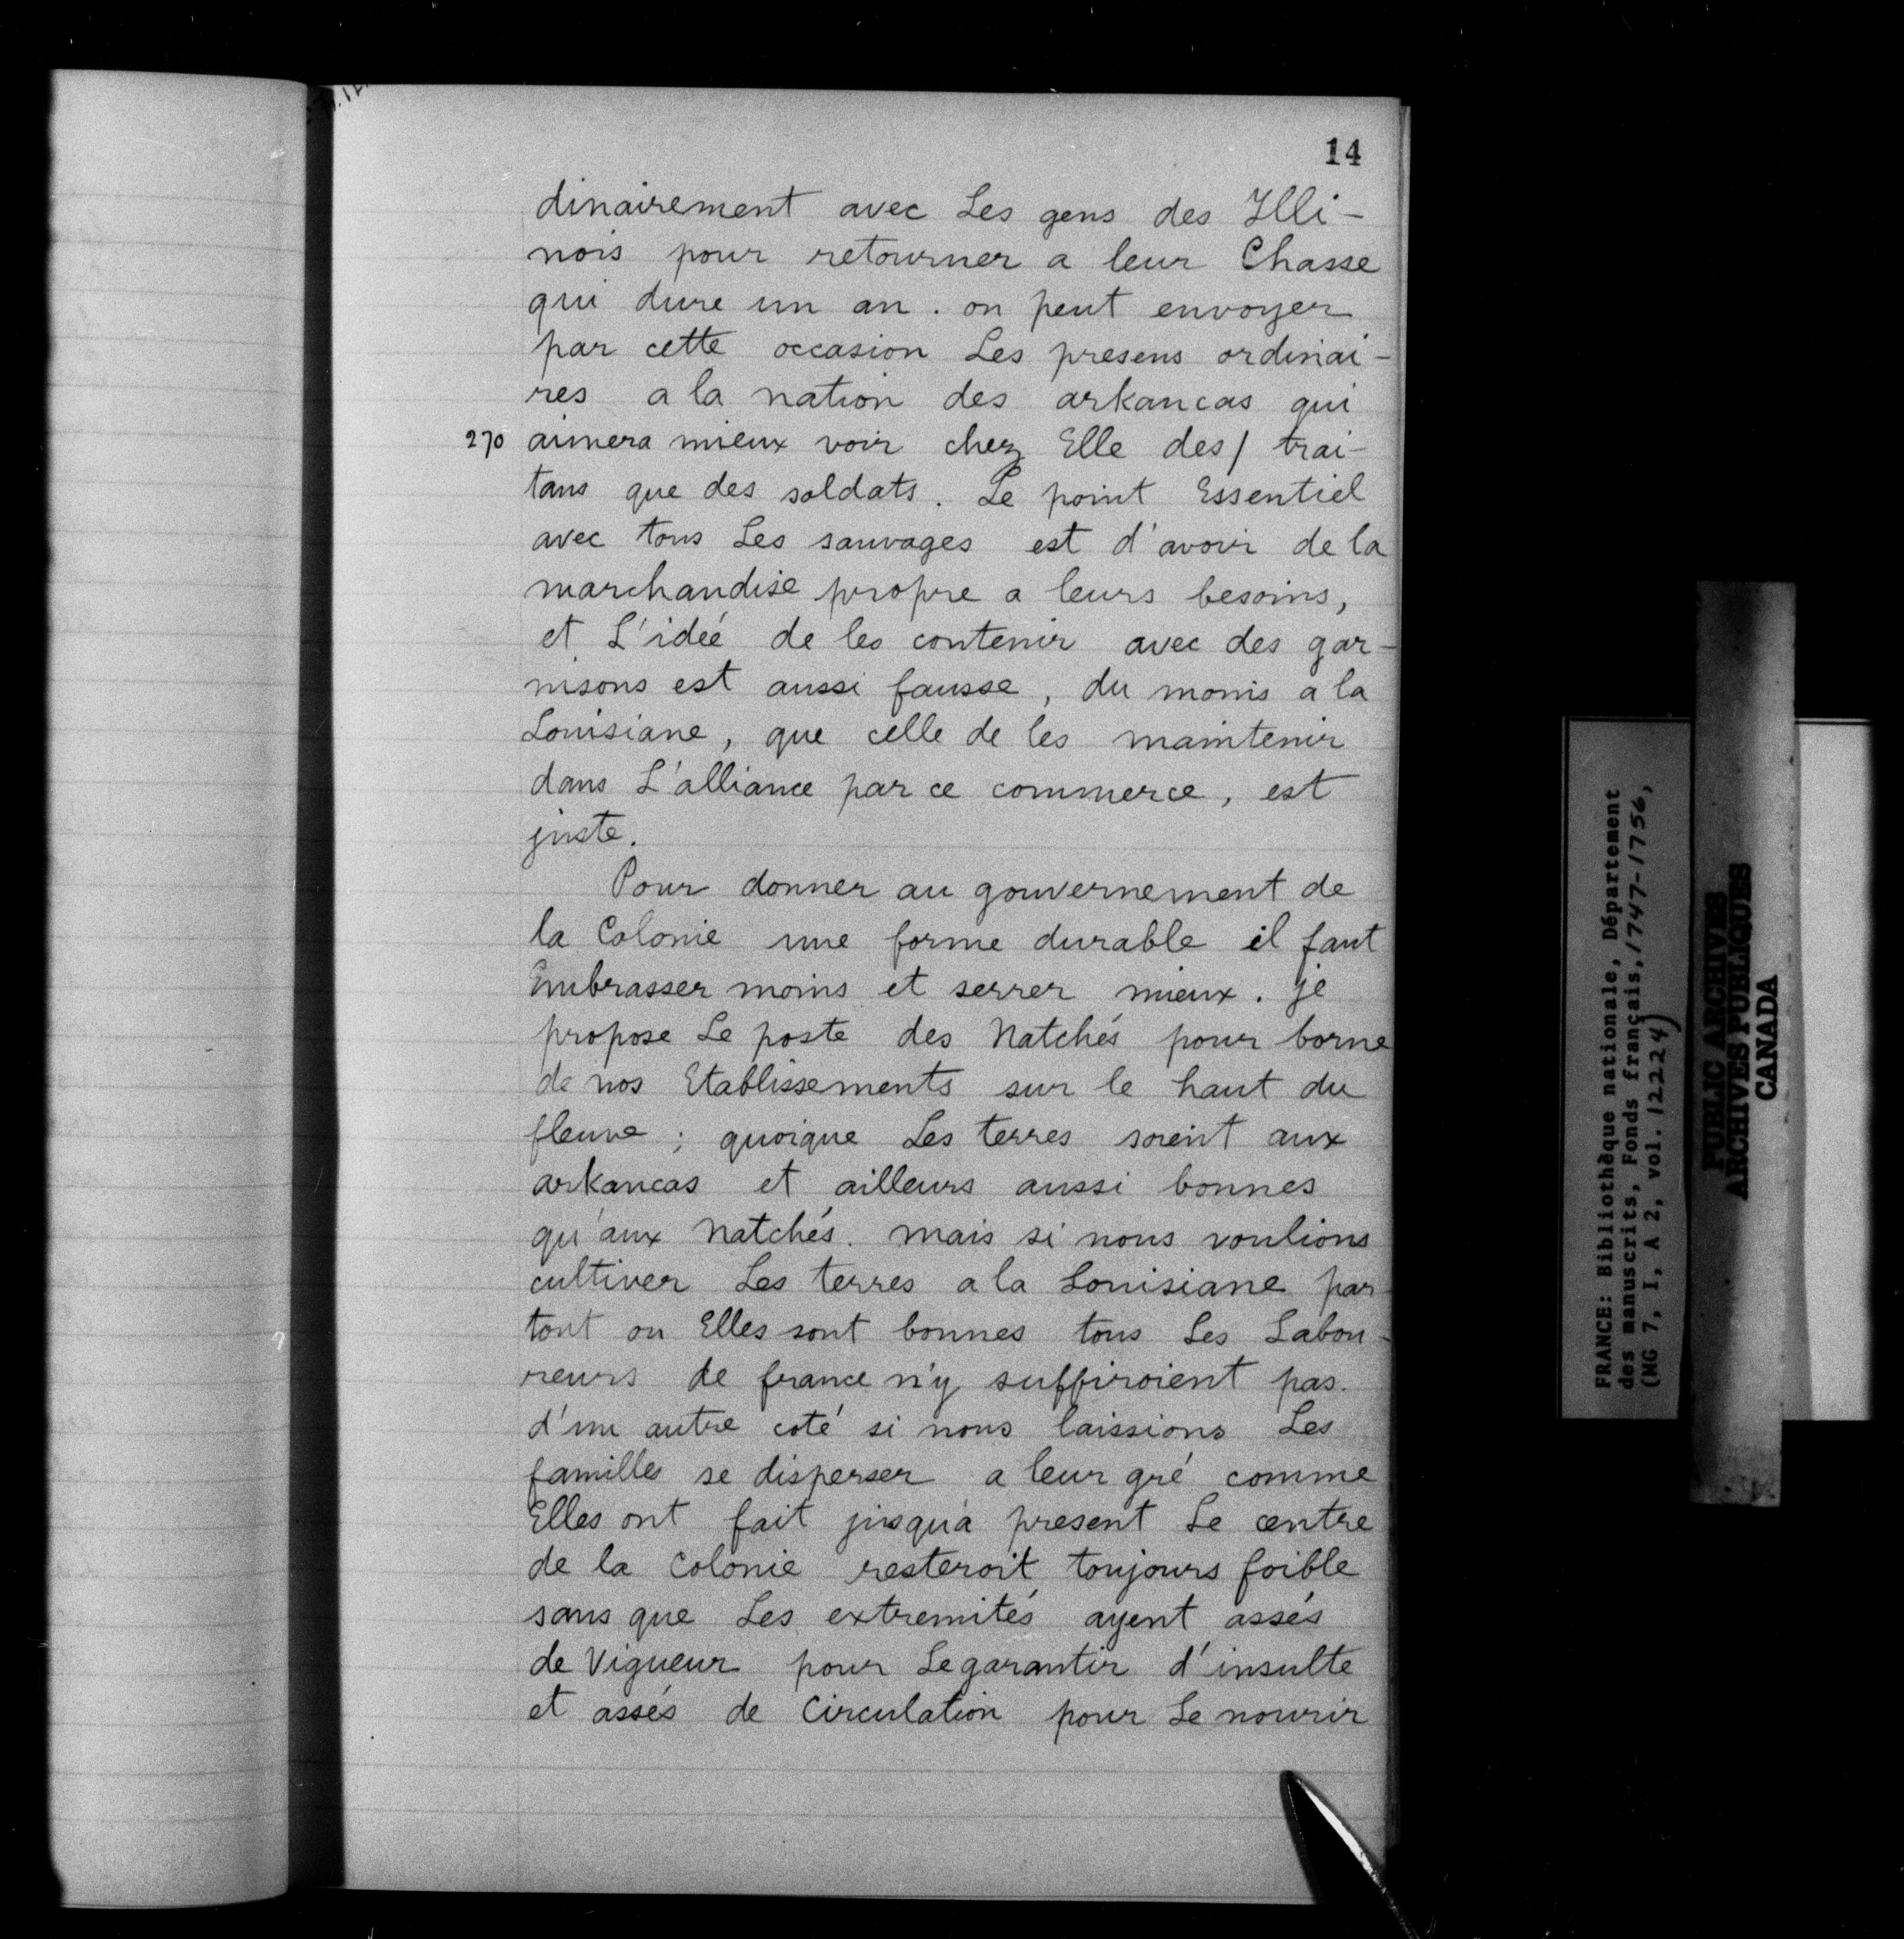 14
dinairement avec Les gens des Illi-
nois pour retourner a leur Chasse
qui dure un an. on peut envoyer
par cette occasion Les presens ordinai-
res a la nation des arkancas qui
270 aimera mieux voir chez Elle des/ trai-
tans que des soldats. Le point Essentiel
avec tous Les sauvages est d'avoir de la
marchandise propre a leurs besoins,
et L'idée de les contenir avec des gar-
nisons est aussi fausse, du moins a la
Louisiane, que celle de les maintenir
dans L'alliance par ce commerce, est
juste.
Pour donner au gouvernement de
la Colonie une forme durable il faut
Embrasser moins et serrer mieux. je
propose Le poste des Natchés pour borne
de nos Etablissements sur le haut du
fleuve; quoique Les terres soient aux
arkancas et ailleurs aussi bonnes
qu'aux Natchés. mais si nous voulions
cultiver Les terres a la Louisiane par-
tout ou Elles sont bonnes tous Les Labou-
reurs de france n'y suffiroient pas.
d'un autre coté si nous laissions Les
familles se disperser a leur gré comme
Elles ont fait jusqu'a present Le centre
de la Colonie resteroit toujours foible
sans que Les extremités ayent assés
de Vigueur pour Le garantir d'insulte
et assés de Circulation pour Le nourir
FRANCE: Bibliothèque nationale, Département
des manuscrits, Fonds français, 1747-1756,
(MG 7, I, A 2, vol. 12224)
PUBLIC ARCHIVES
ARCHIVES PUBLIQUES
CANADA